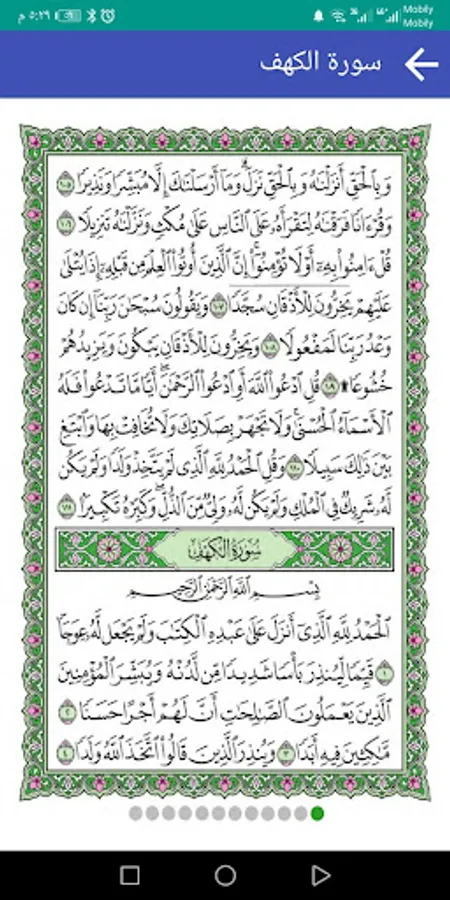 ٥:٢٩ م
Mobily
Mobily
سورة الكهف
وَبِالْحَقِّ أَنزَلْنَاهُ وَبِالْحَقِّ نَزَلَ ۗ وَمَا أَرْسَلْنَاكَ إِلَّا مُبَشِّرًا وَنَذِيرًا ١٠٥
وَقُرْءَانًا فَرَقْنَاهُ لِتَقْرَأَهُ عَلَى النَّاسِ عَلَىٰ مُكْثٍ وَنَزَّلْنَاهُ تَنزِيلًا ١٠٦
قُلْ ءَامِنُوا بِهِ أَوْ لَا تُؤْمِنُوا ۚ إِنَّ الَّذِينَ أُوتُوا الْعِلْمَ مِن قَبْلِهِ إِذَا يُتْلَىٰ
عَلَيْهِمْ يَخِرُّونَ لِلْأَذْقَانِ سُجَّدًا ١٠٧ وَيَقُولُونَ سُبْحَانَ رَبِّنَا إِن كَانَ
وَعْدُ رَبِّنَا لَمَفْعُولًا ١٠٨ وَيَخِرُّونَ لِلْأَذْقَانِ يَبْكُونَ وَيَزِيدُهُمْ
خُشُوعًا ۩ ١٠٩ قُلِ ادْعُوا اللَّهَ أَوِ ادْعُوا الرَّحْمَٰنَ ۖ أَيًّا مَّا تَدْعُوا فَلَهُ
الْأَسْمَاءُ الْحُسْنَىٰ ۚ وَلَا تَجْهَرْ بِصَلَاتِكَ وَلَا تُخَافِتْ بِهَا وَابْتَغِ
بَيْنَ ذَٰلِكَ سَبِيلًا ١١٠ وَقُلِ الْحَمْدُ لِلَّهِ الَّذِي لَمْ يَتَّخِذْ وَلَدًا وَلَمْ يَكُن
لَّهُ شَرِيكٌ فِي الْمُلْكِ وَلَمْ يَكُن لَّهُ وَلِيٌّ مِّنَ الذُّلِّ ۖ وَكَبِّرْهُ تَكْبِيرًا ١١١
سُورَةُ الْكَهْفِ
بِسْمِ اللَّهِ الرَّحْمَٰنِ الرَّحِيمِ
الْحَمْدُ لِلَّهِ الَّذِي أَنزَلَ عَلَىٰ عَبْدِهِ الْكِتَابَ وَلَمْ يَجْعَل لَّهُ عِوَجًا
١ قَيِّمًا لِّيُنذِرَ بَأْسًا شَدِيدًا مِّن لَّدُنْهُ وَيُبَشِّرَ الْمُؤْمِنِينَ
الَّذِينَ يَعْمَلُونَ الصَّالِحَاتِ أَنَّ لَهُمْ أَجْرًا حَسَنًا ٢
مَّاكِثِينَ فِيهِ أَبَدًا ٣ وَيُنذِرَ الَّذِينَ قَالُوا اتَّخَذَ اللَّهُ وَلَدًا ٤